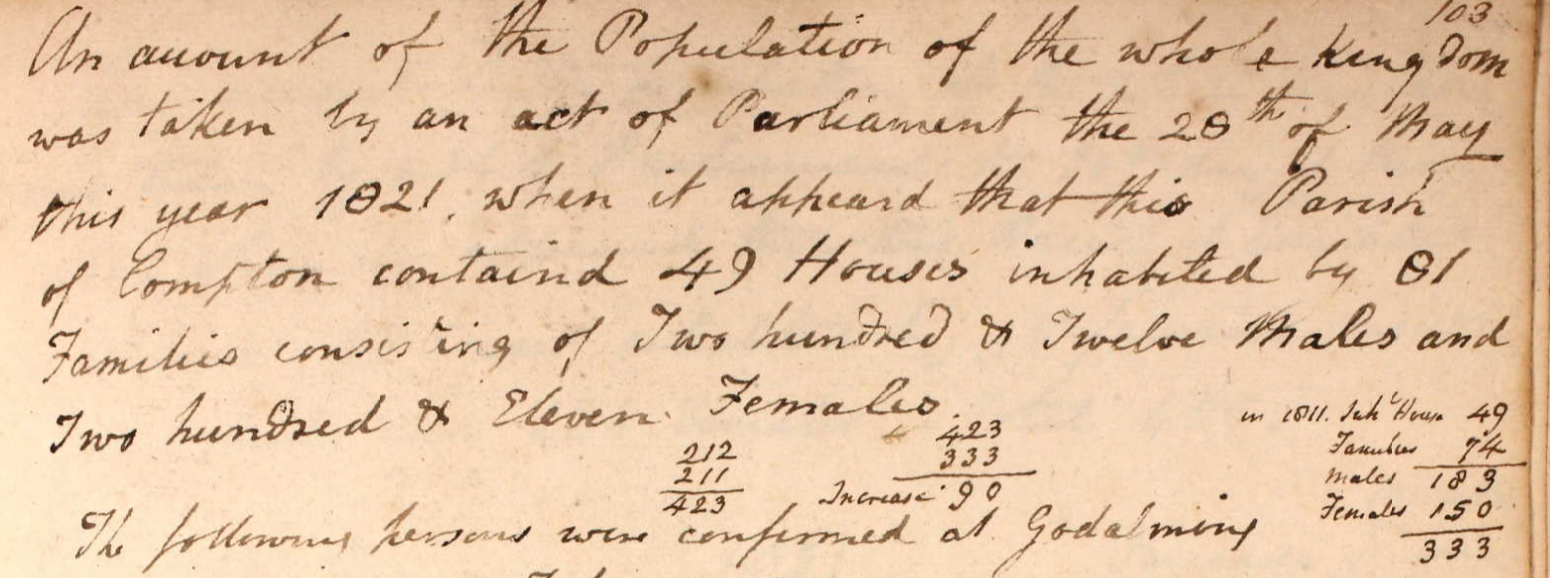 103
An account of the Population of the whole Kingdom
was taken by an act of Parliament the 28th of May
this year 1821. when it appeard that this Parish
of Compton containd 49 Houses inhabited by 81
Families consisting of Two hundred & Twelve Males and
Two hundred & Eleven Females.
212
211
423
423
333
Increase 90
in 1811. Inhd House 49
Families 74
Males 183
Females 150
333
The following persons were confirmed at Godalming